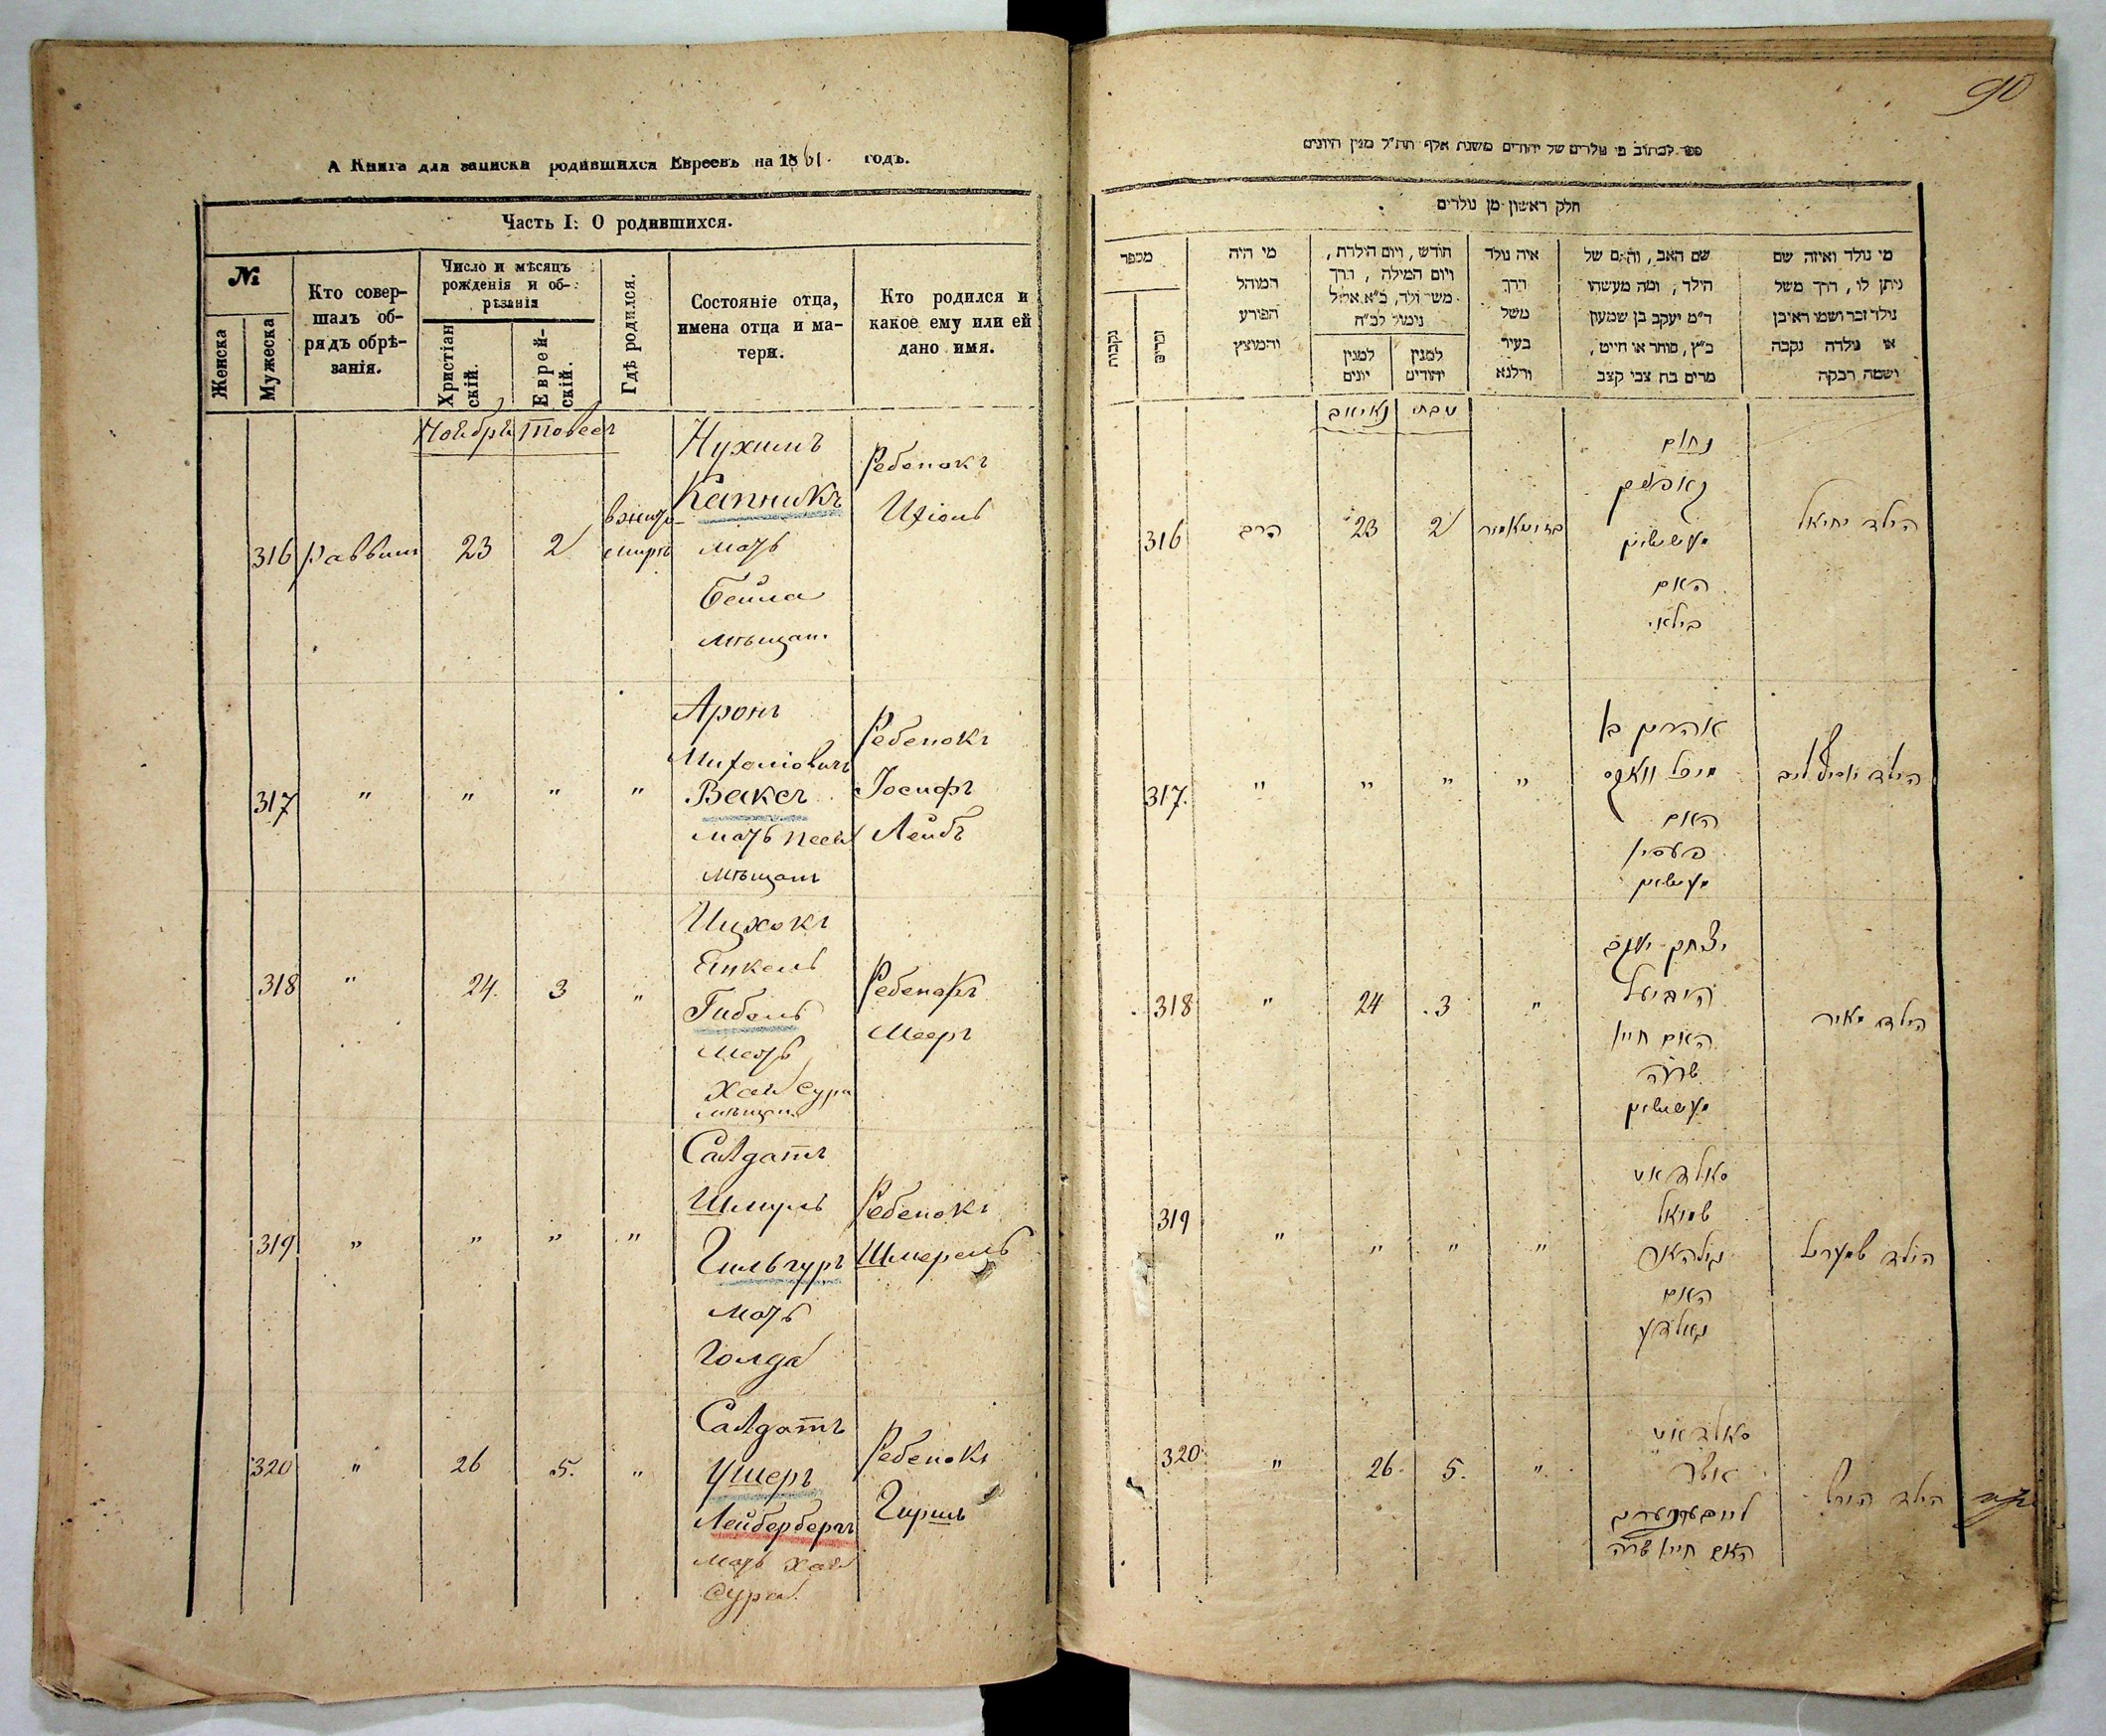 А Книга для записки родившихся Евреевъ на 1861. годъ.
Часть I: О родившихся.
№
Женска
Мужеска
Кто совер-
шалъ об-
рядъ обрѣ-
занія.
Число и мѣсяцъ
рожденія и об-
рѣзанія
Христіан
скій.
Еврей-
скій.
Гдѣ родился.
Состояніе отца,
имена отца и ма-
тери.
Кто родился и
какое ему или ей
дано имя.
Ноябрь
316 Раввин 23 2
Нухимъ
Капникъ
мать
Бейла
мѣщан.
Ребенокъ
Ихіель
317 " " " "
Аронъ
Ваксъ
мать
мѣщан
Ребенокъ
Іосифъ
Лейбъ
318 " 24. 3 "
Ицхокъ
Янкель
Гибель
мать
Хая Сура
мѣщан.
Ребенокъ
Меер
319 " " " "
Салдатъ
Шмуль
мать
Голда
Ребенокъ
Шмерель
320 " 26 5. "
Салдатъ
Ушеръ
Лейбербергъ
мать Хая
Сура
Ребенокъ
Гиршъ
90
ספר לכתוב בו נולדים של יהודים משנת אלף תת״ל מנין היונים
חלק ראשון מן נולדים
מספר
נקבות
זכרים
מי היה
המוהל
הפורע
והמוצץ
חודש, ויום הולדת,
ויום המילה, דרך
נימול לכ״ח
למנין
יונים
למנין
יהודים
איה נולד
דרך
משל
בעיר
ווילנא
שם האב, והאם של
הילד, ומה מעשהו
ד״מ יעקב בן שמעון
כ״ץ, סוחר או חייט,
מרים בת צבי קצב
מי נולד ואיזה שם
ניתן לו, דרך משל
נולד זכר ושמו ראובן
או נולדה נקבה
ושמה רבקה
טבת
316 הרב 23 2
נחום
האם
ביילא
הילד יחיאל
317. " " " "
אהרן בן
האם
הילד יוסף ליב
318 " 24 3 "
יצחק יעקב
האם חייא
שרה
הילד מאיר
319 " " " "
סאלדאט
שמואל
האם
גאלדע
הילד שמעריל
320 " 26. 5. "
סאלדאט
אשר
האם חייא שרה
הילד הירש